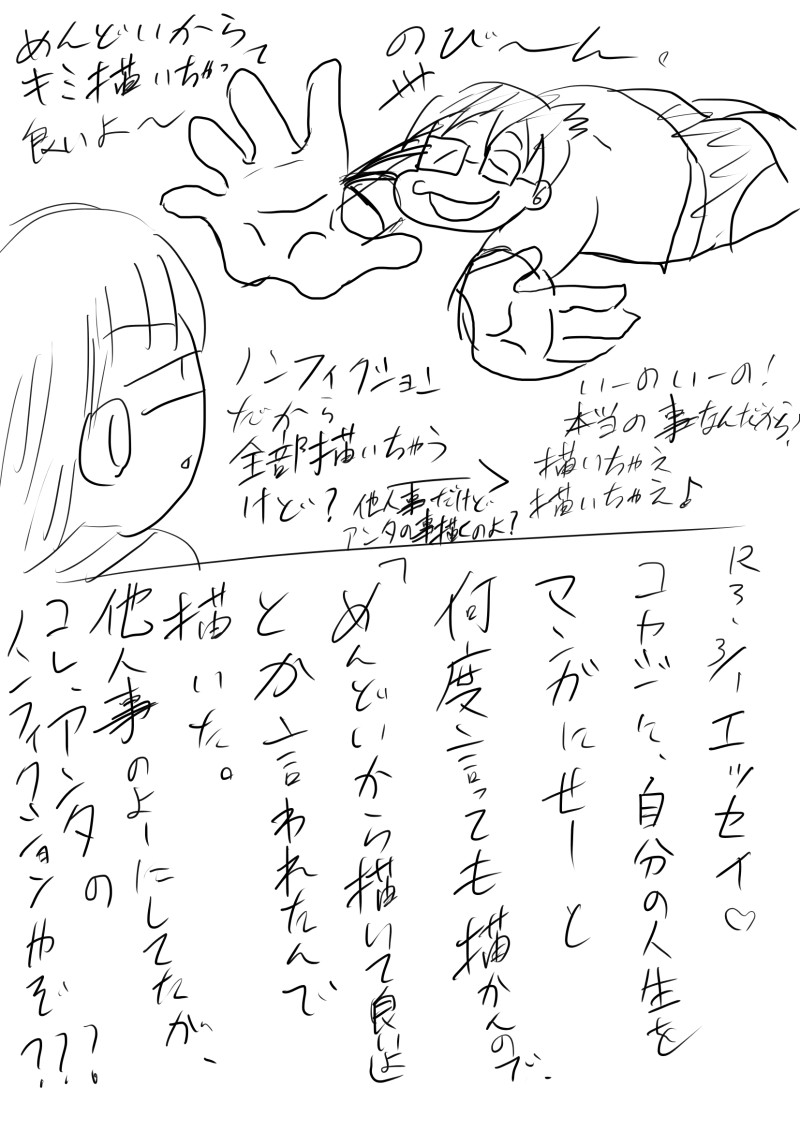 のび〜ん。
めんどいから
キミ描いちゃって
良いよ〜
ノンフィクション
だから
全部描いちゃう
けど?
他人事だけど
アンタの事描くのよ?
いーのいーの!
本当の事なんだから!
描いちゃえ
描いちゃえ♪
エッセイ♡
自分の人生を
マンガにせーと
何度言っても描かんので、
「めんどいから描いて良いよ
とか言われたんで
描いた。
他人事のよーにしてたが、
コレ、アンタの
ノンフィクションやぞ???